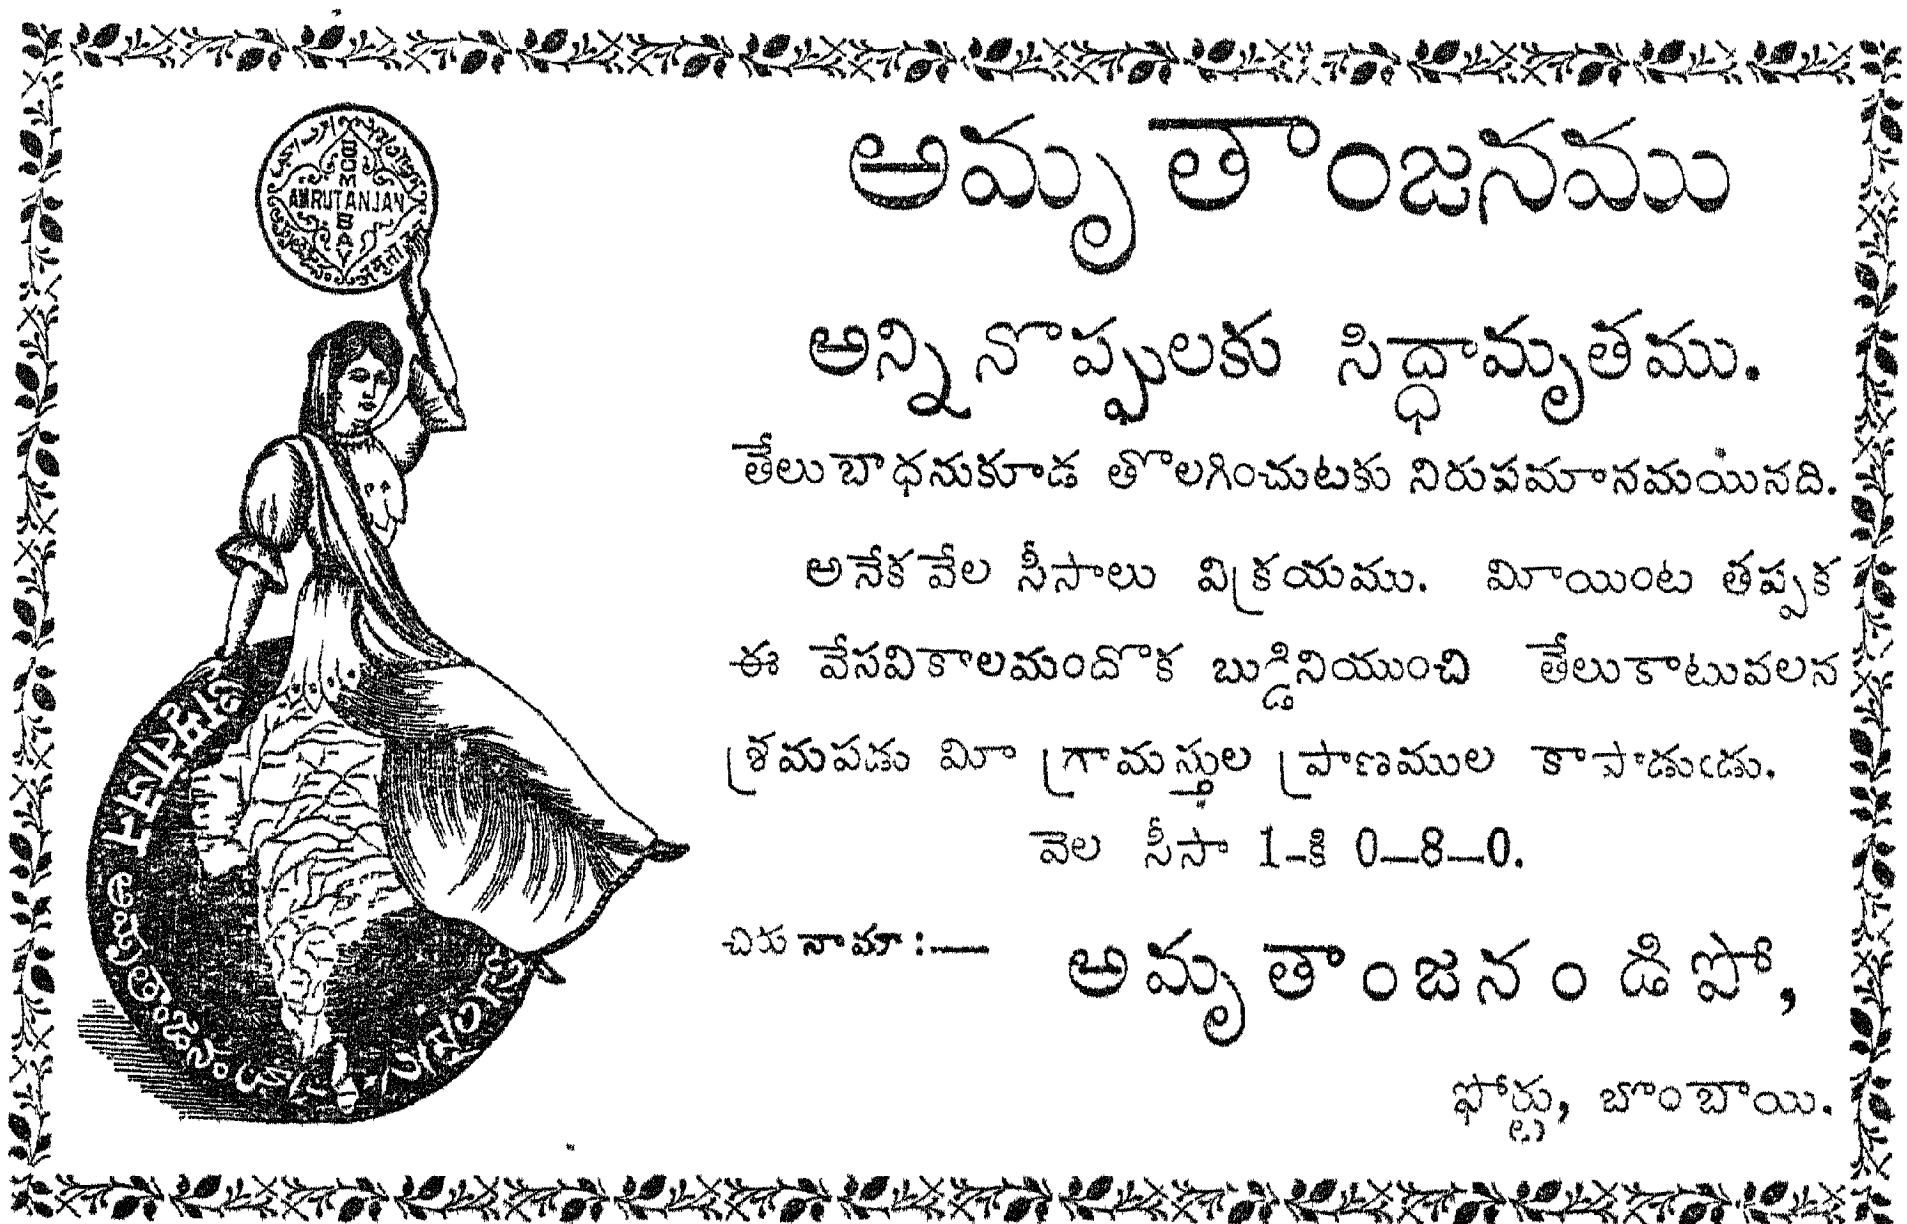 BOMBAY
AMRUTANJAN
అమృతాంజనము
అన్నినొప్పులకు సిద్ధామృతము.
తేలుబాధనుకూడ తొలగించుటకు నిరుపమానమయినది.
అనేకవేల సీసాలు విక్రయము. మీయింట తప్పక
ఈ వేసవికాలమందొక బుడ్డినియుంచి తేలుకాటువలన
శ్రమపడు మీ గ్రామస్తుల ప్రాణముల కాపాడుఁడు.
వెల సీసా 1-కి 0—8—0.
చిరునామా :—
అమృతాంజనం డిపో,
ఫోర్టు, బొంబాయి.